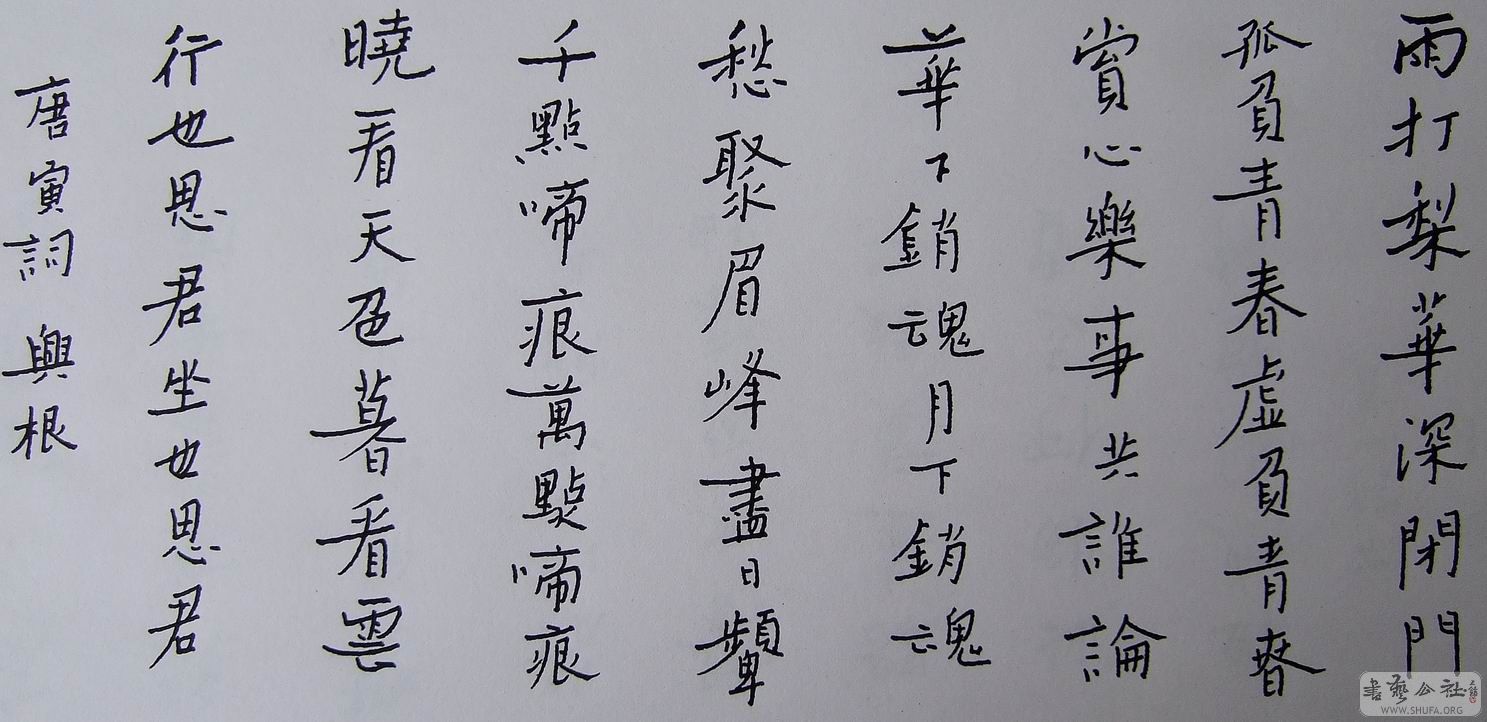 雨打梨華深閉門
孤負青春虛負青春
賞心樂事共誰論
華下銷魂月下銷魂
愁聚眉峰盡日顰
千點啼痕萬點啼痕
曉看天色暮看雲
行也思君坐也思君
唐寅詞 興根
書藝公社
WWW.SHUFA.ORG